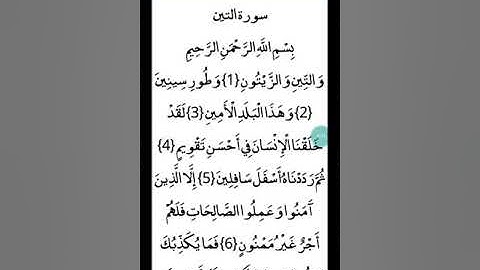 سورة التين
بِسْمِ اللَّهِ الرَّحْمَنِ الرَّحِيمِ
وَالتِّينِ وَالزَّيْتُونِ {1} وَطُورِ سِينِينَ
{2} وَهَذَا الْبَلَدِ الْأَمِينِ {3} لَقَدْ
خَلَقْنَا الْإِنْسَانَ فِي أَحْسَنِ تَقْوِيمٍ {4}
ثُمَّ رَدَدْنَاهُ أَسْفَلَ سَافِلِينَ {5} إِلَّا الَّذِينَ
آمَنُوا وَعَمِلُوا الصَّالِحَاتِ فَلَهُمْ
أَجْرٌ غَيْرُ مَمْنُونٍ {6} فَمَا يُكَذِّبُكَ